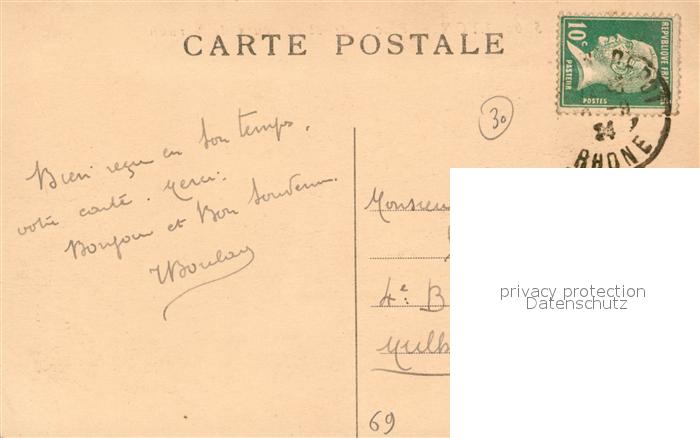 CARTE POSTALE
10c
REPUBLIQUE FRAN
PASTEUR
POSTES
24
RHONE
30
Bien reçu en son temps,
votre carte. Merci.
Bonjour et Bon Souvenir.
Monsieur
4e B
Mulh
privacy protection
Datenschutz
69